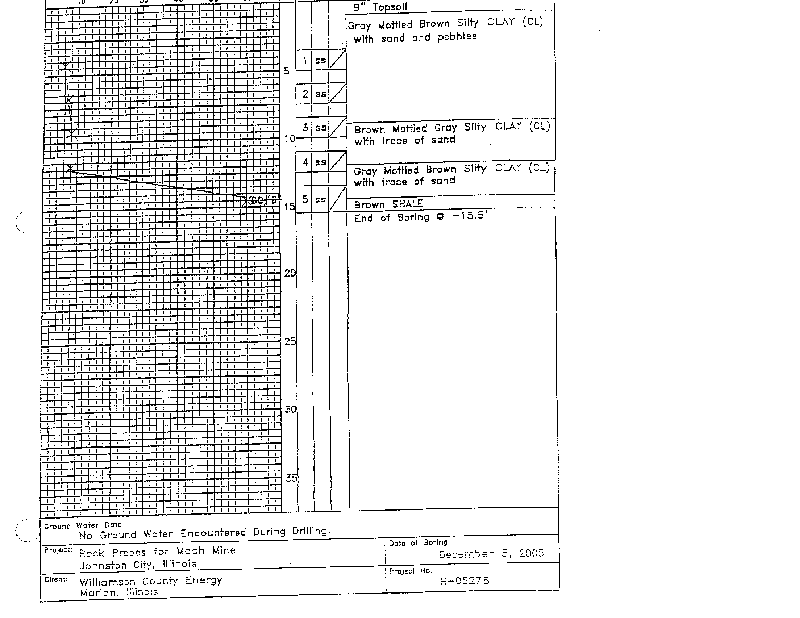 9" Topsoil
Gray Mottled Brown Silty CLAY (CL)
with sand and pebbles
1 ss
5
2 ss
3 ss
10
Brown Mottled Gray Silty CLAY (CL)
with trace of sand
4 ss
Gray Mottled Brown Silty CLAY (CL)
with trace of sand
5 ss
15
Brown SHALE
End of Boring @ -15.5'
20
25
30
35
Ground Water Data
No Ground Water Encountered During Drilling.
Project:
Rock Props for Mach Mine
Johnston City, Illinois
Date of Boring
December 5, 2005
Client:
Williamson County Energy
Marion, Illinois
Project No.
H-05275